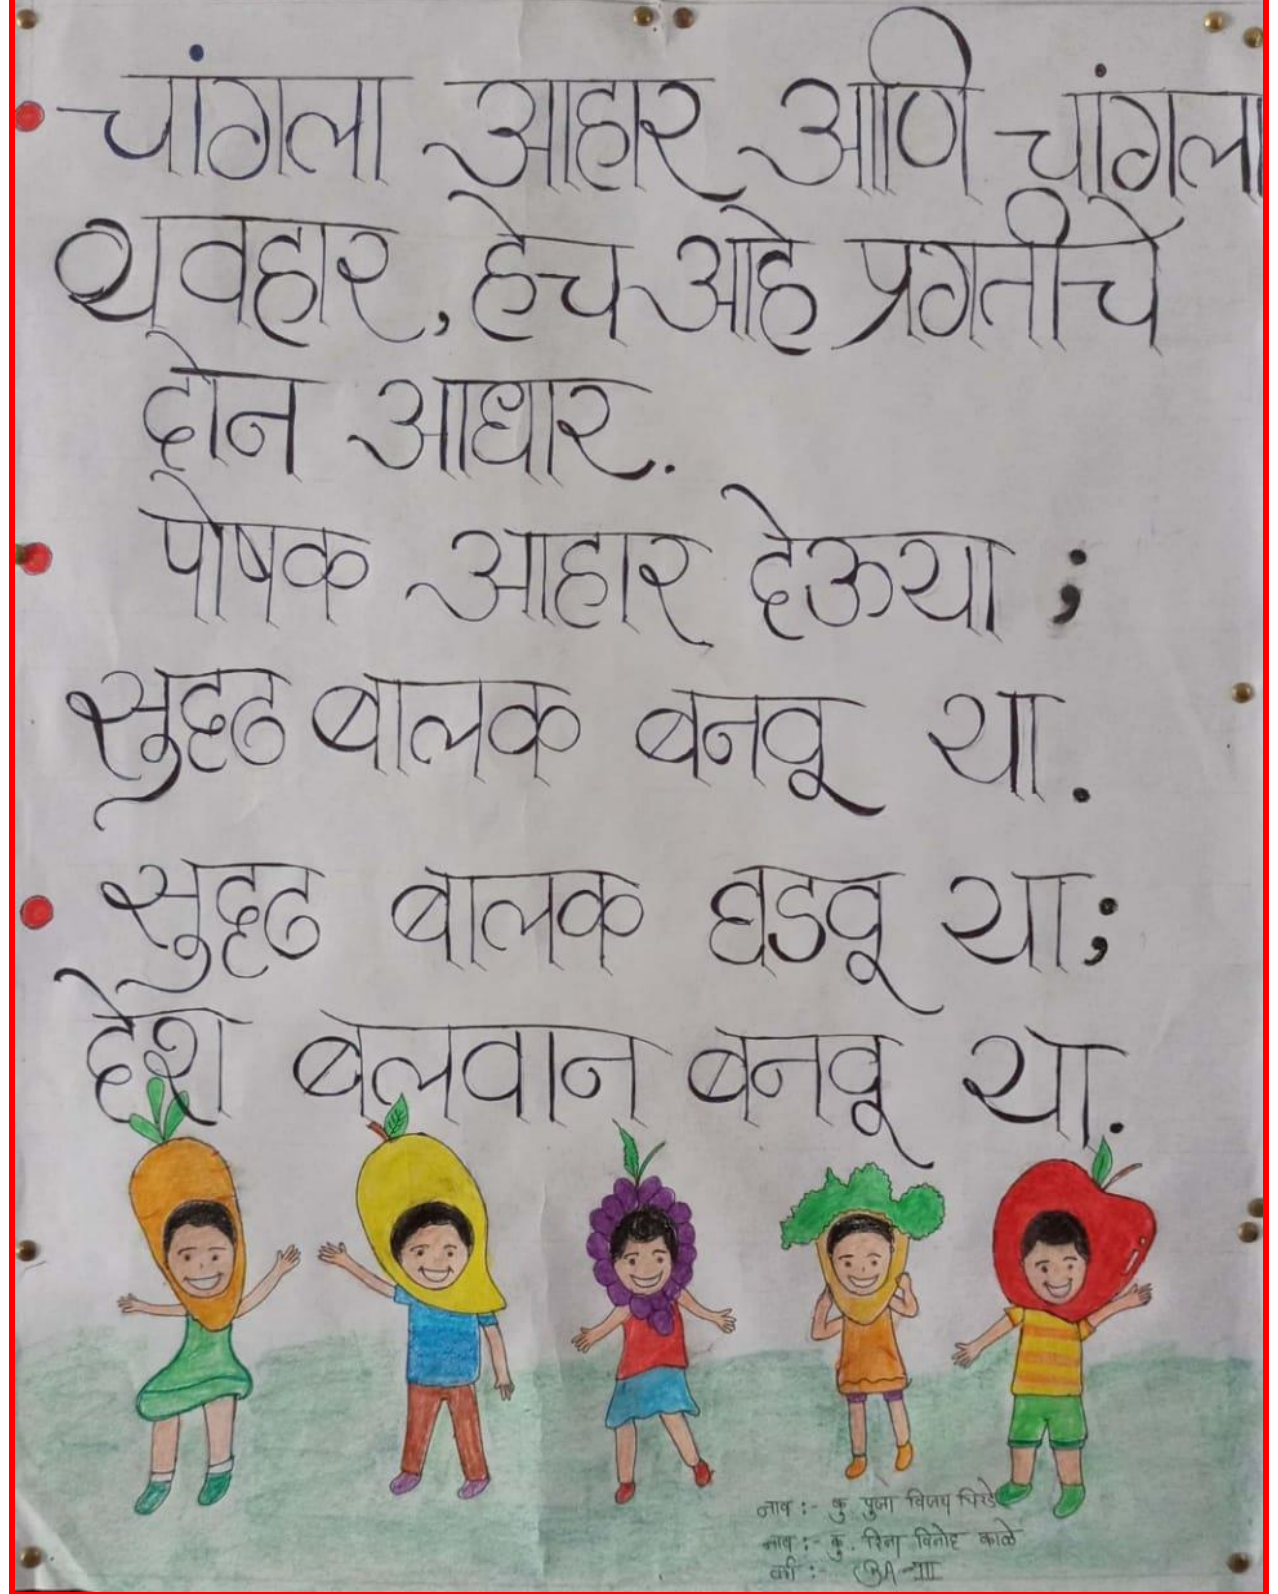 चांगला आहार आणि चांगला
व्यवहार, हेच आहे प्रगतीचे
दोन आधार.
पोषक आहार देऊया ;
सुदृढ बालक बनवू या.
सुदृढ बालक घडवू या;
देश बलवान बनवू या.
नाव :- कु. पुजा विजय
नाव :- कु. रिना विनोद काळे
वर्ग :- BA-III